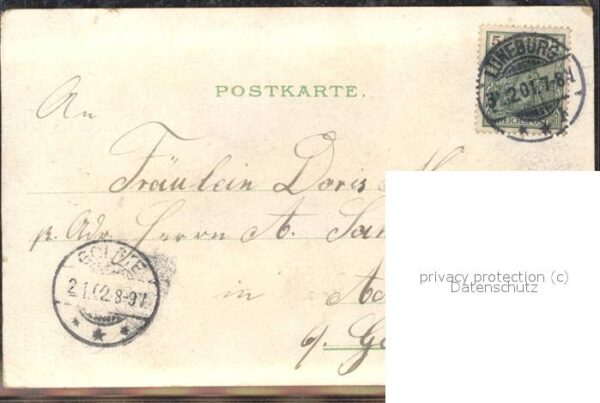 POSTKARTE.
5
REICHSPOST
LÜNEBURG
01.7-8N
An
Fräulein Doris
p. Adr. Herrn A.
in
b/.
2.1.02.8-9V.
privacy protection (c)
Datenschutz